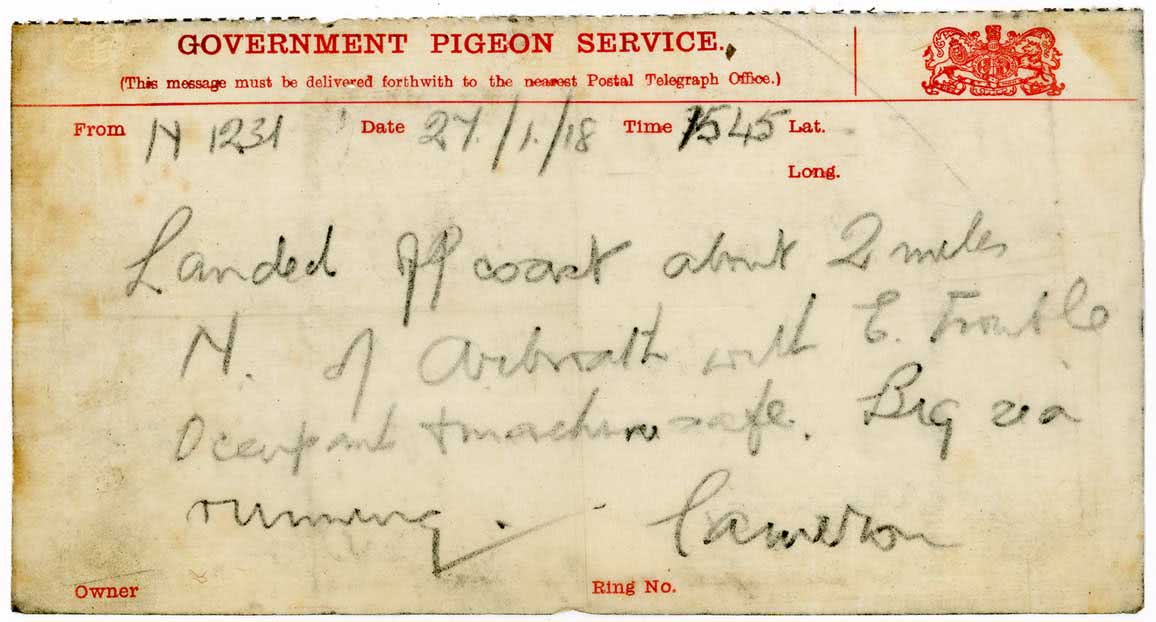 GOVERNMENT PIGEON SERVICE.
(This message must be delivered forthwith to the nearest Postal Telegraph Office.)
From N 1231 Date 27/1/18 Time 1545 Lat.
Long.
Landed off coast about 2 miles
N. of Arbroath with E. Trouble
Occupant + machine safe. Big sea
running. Cameron
Owner Ring No.